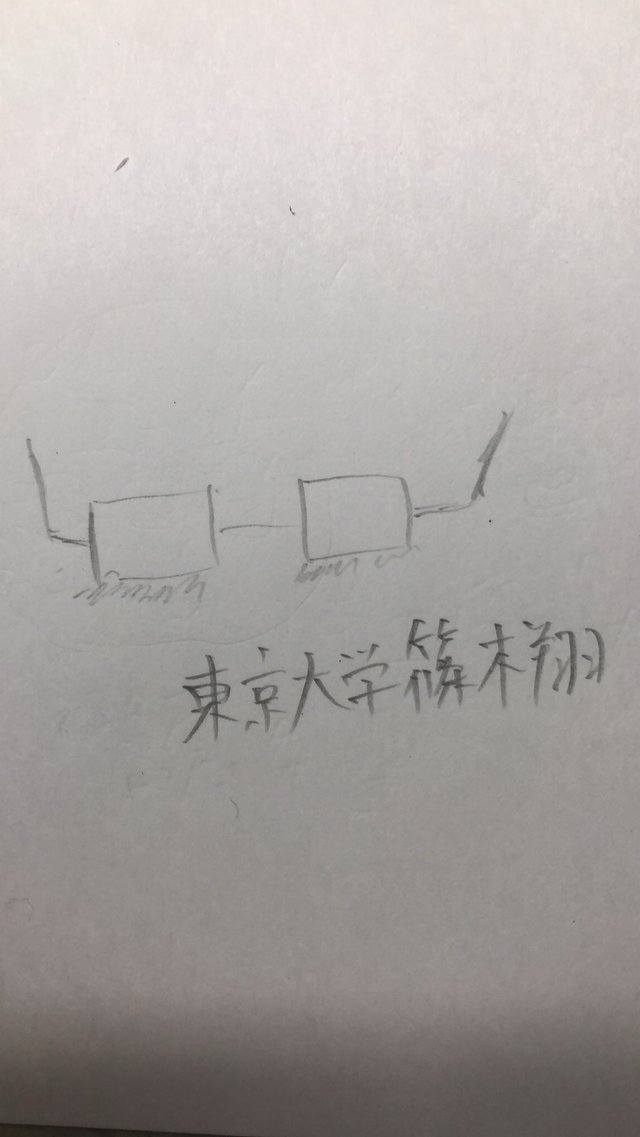 東京大学篠木翔